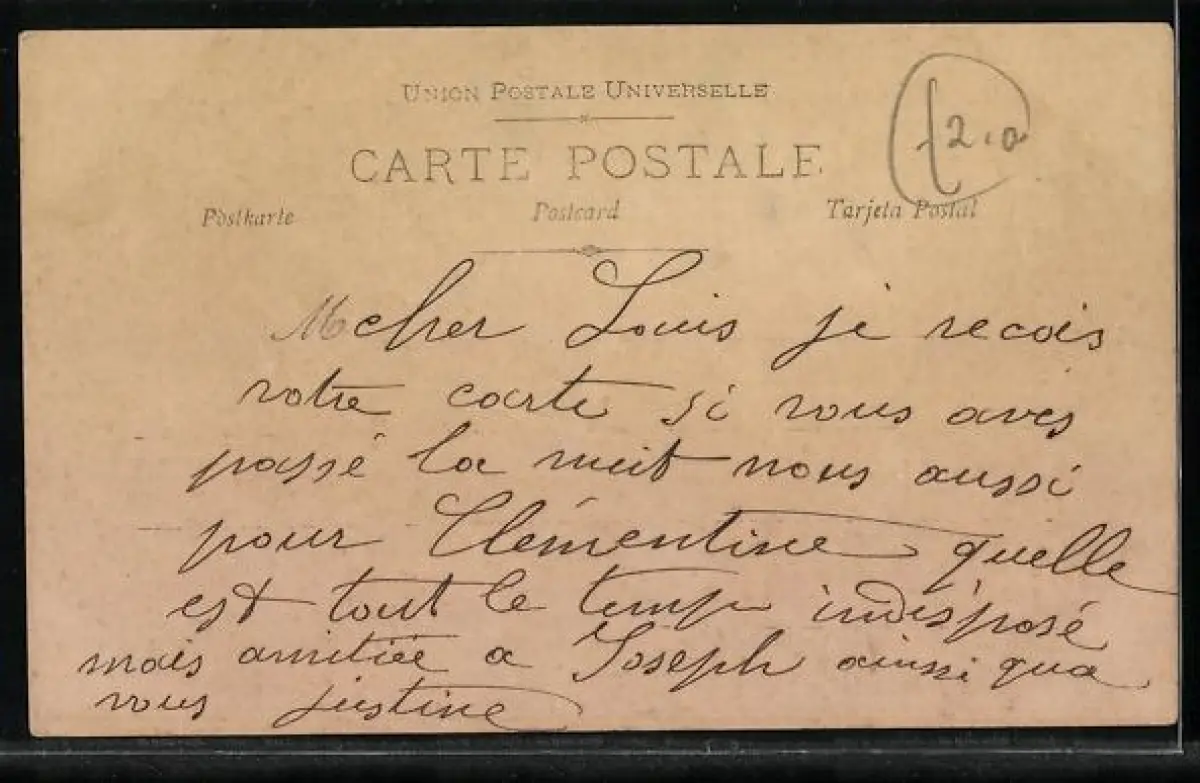 UNION POSTALE UNIVERSELLE
CARTE POSTALE
Postkarte Postcard Tarjeta Postal
12.0
M cher Louis je recois
votre carte si vous aves
passé la nuit nous aussi
pour Clémentine quelle
est tout le temp indisposé
mais amitiée a Joseph ainsi qua
vous justine